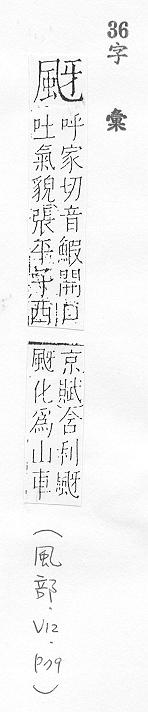 36字彙
颬
呼家切音鰕開口
吐氣貌張平子西
京賦含利颬
颬化爲山車
(風部.V12.p79)